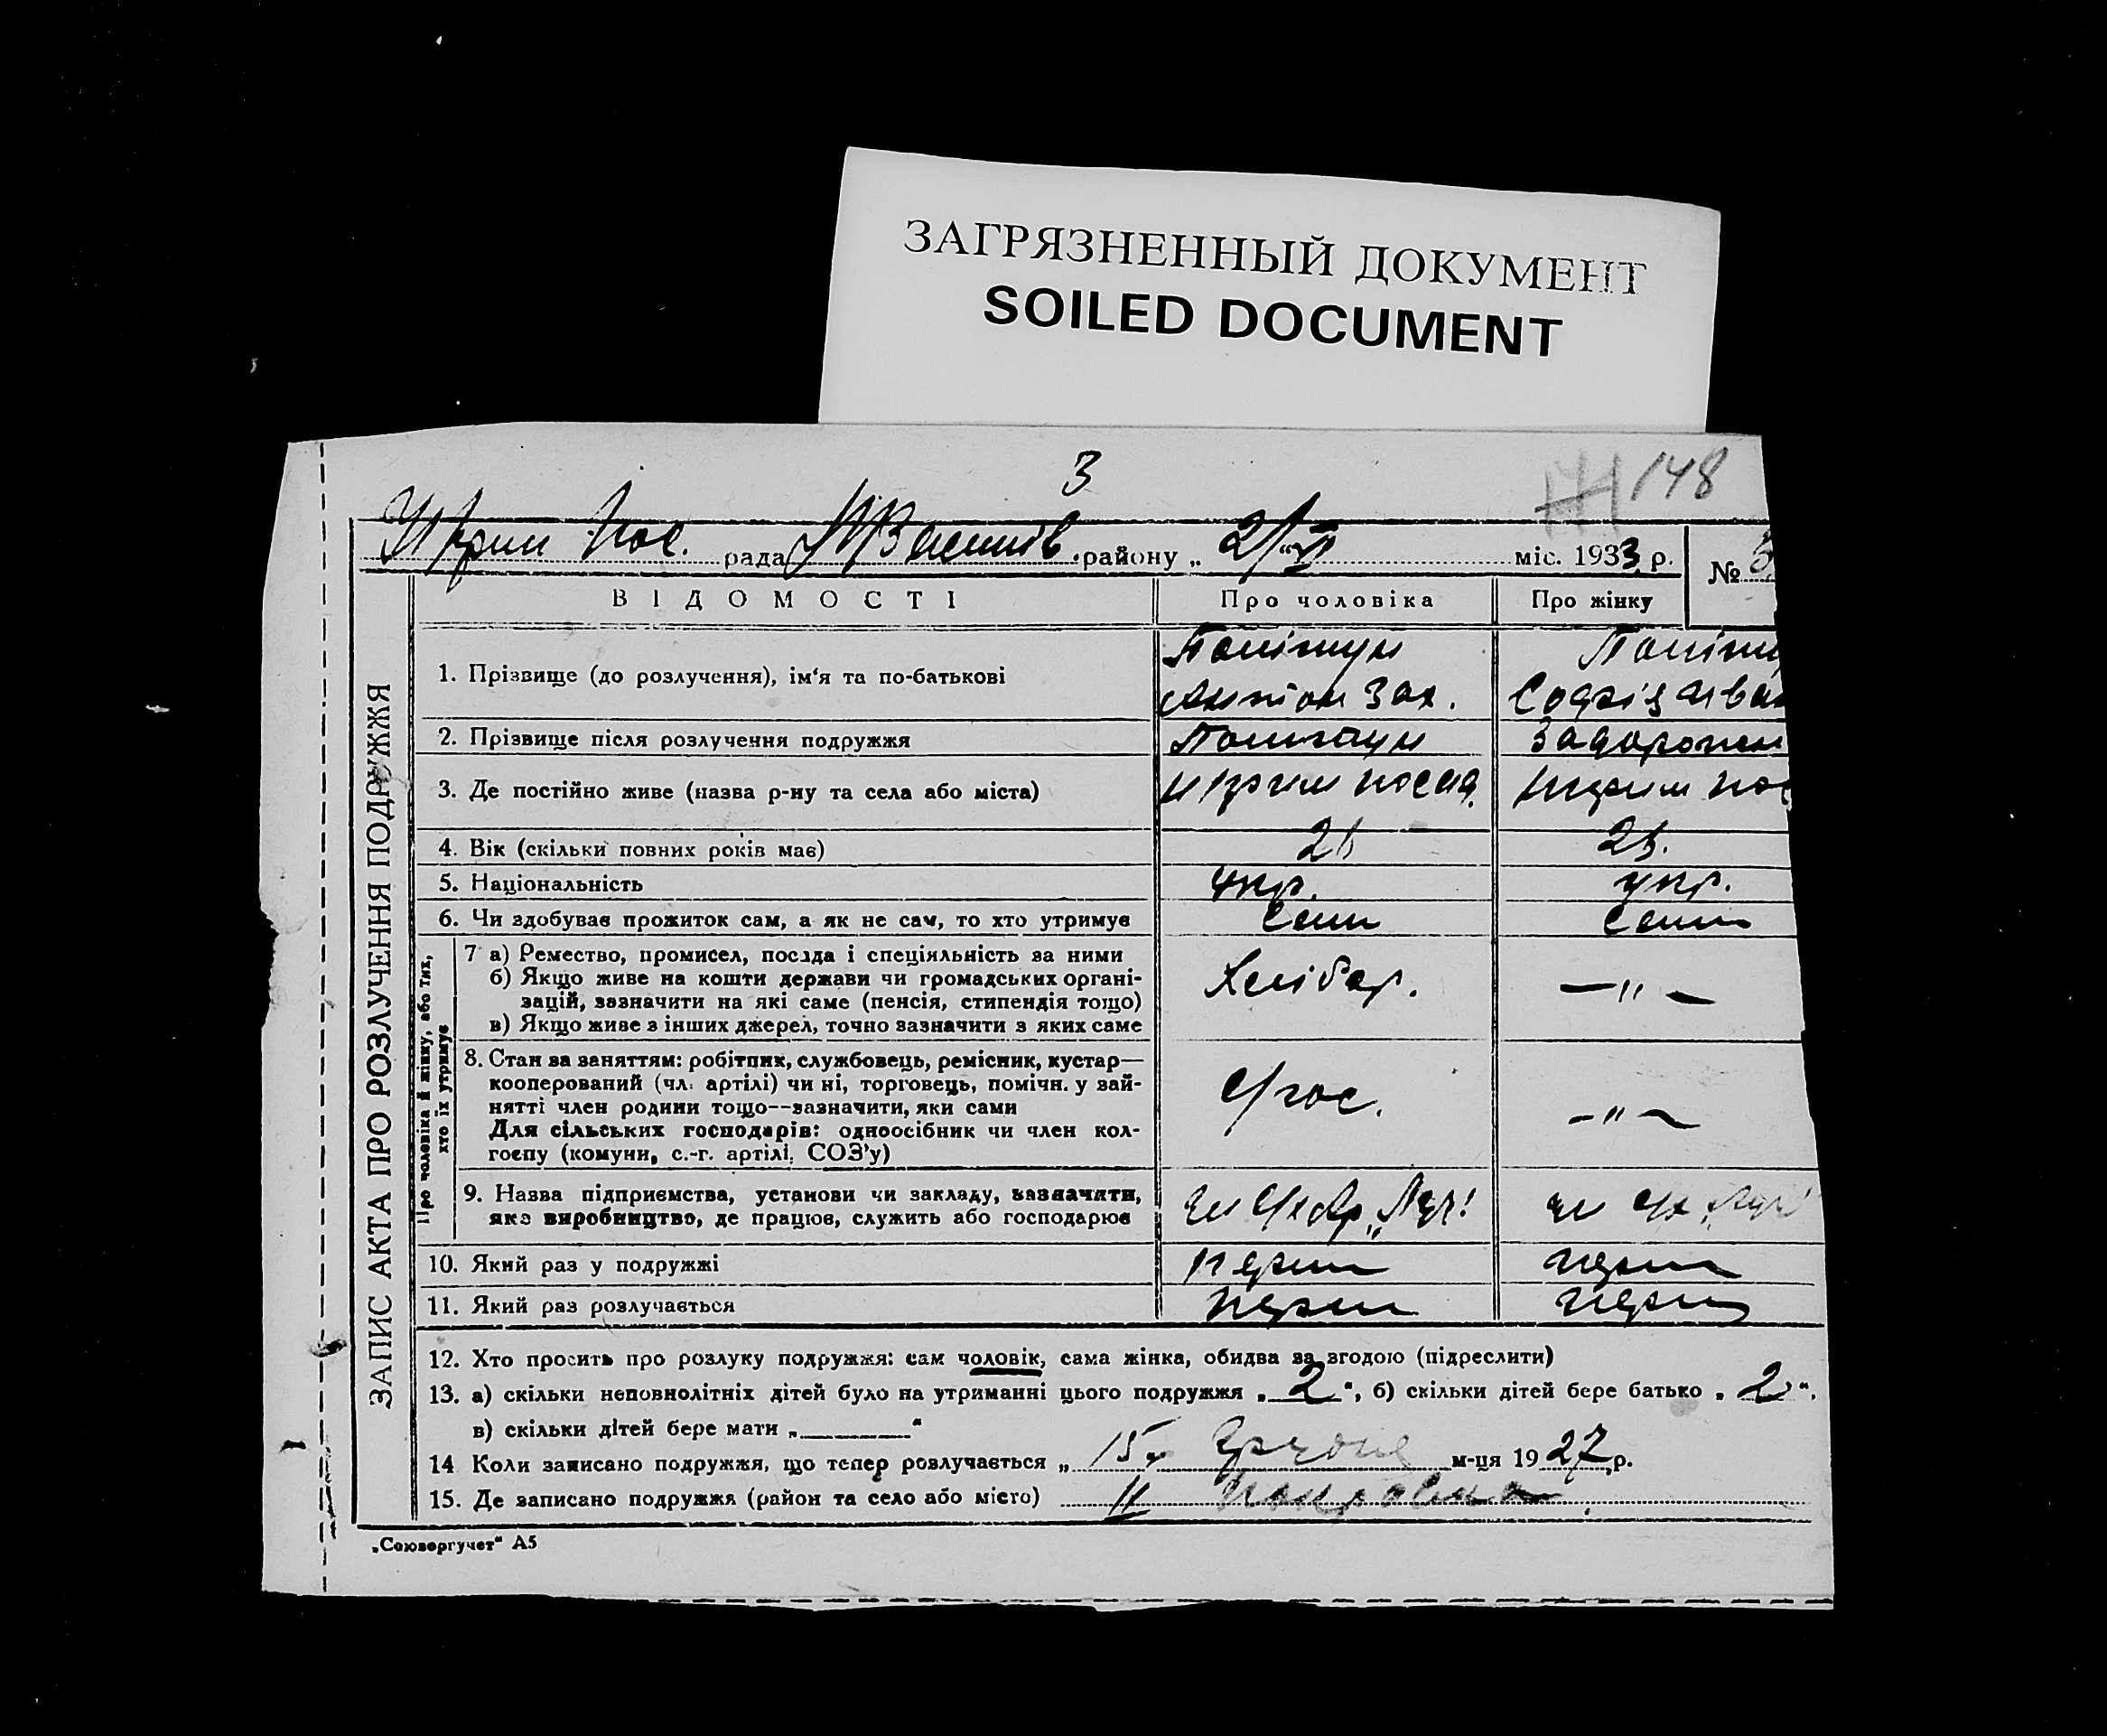 ЗАГРЯЗНЕННЫЙ ДОКУМЕНТ
SOILED DOCUMENT
3
148
рада району „ 21 “ VI міс. 1933 р. №
ЗАПИС АКТА ПРО РОЗЛУЧЕННЯ ПОДРУЖЖЯ
ВІДОМОСТІ Про чоловіка Про жінку
1. Прізвище (до розлучення), ім‘я та по-батькові
Антон Зах. Софія Іван
2. Прізвище після розлучення подружжя
3. Де постійно живе (назва р-ну та села або міста)
4. Вік (скільки повних років має)
5. Національність укр. укр.
6. Чи здобуває прожиток сам, а як не сам, то хто утримує сам сама
Про чоловіка й жінку, або тих, хто їх утримує
7 а) Ремество, промисел, посада і спеціяльність за ними
б) Якщо живе на кошти держави чи громадських органі-
зацій, зазначити на які саме (пенсія, стипендія тощо)
в) Якщо живе з інших джерел, точно зазначити з яких саме
Хлібор. —〃—
8. Стан за заняттям: робітник, службовець, ремісник, кустар—
кооперований (чл. артілі) чи ні, торговець, помічн. у зай-
нятті член родини тощо--зазначити, яки сами
Для сільських господарів: одноосібник чи член кол-
госпу (комуни, с.-г. артілі, СОЗ’у)
с/гос. —〃—
9. Назва підприємства, установи чи закладу, зазначити,
яке виробництво, де працює, служить або господарює
10. Який раз у подружжі перш перш
11. Який раз розлучається перш перш
12. Хто просить про розлуку подружжя: сам чоловік, сама жінка, обидва за згодою (підреслити)
13. а) скільки неповнолітніх дітей було на утриманні цього подружжя „ 2 “, б) скільки дітей бере батько „ 2 “.
в) скільки дітей бере мати „ “
14 Коли записано подружжя, що тепер розлучається „ 15 грудня м-ця 1927 р.
15. Де записано подружжя (район та село або місто) Покровка
„Союзоргучет“ А5